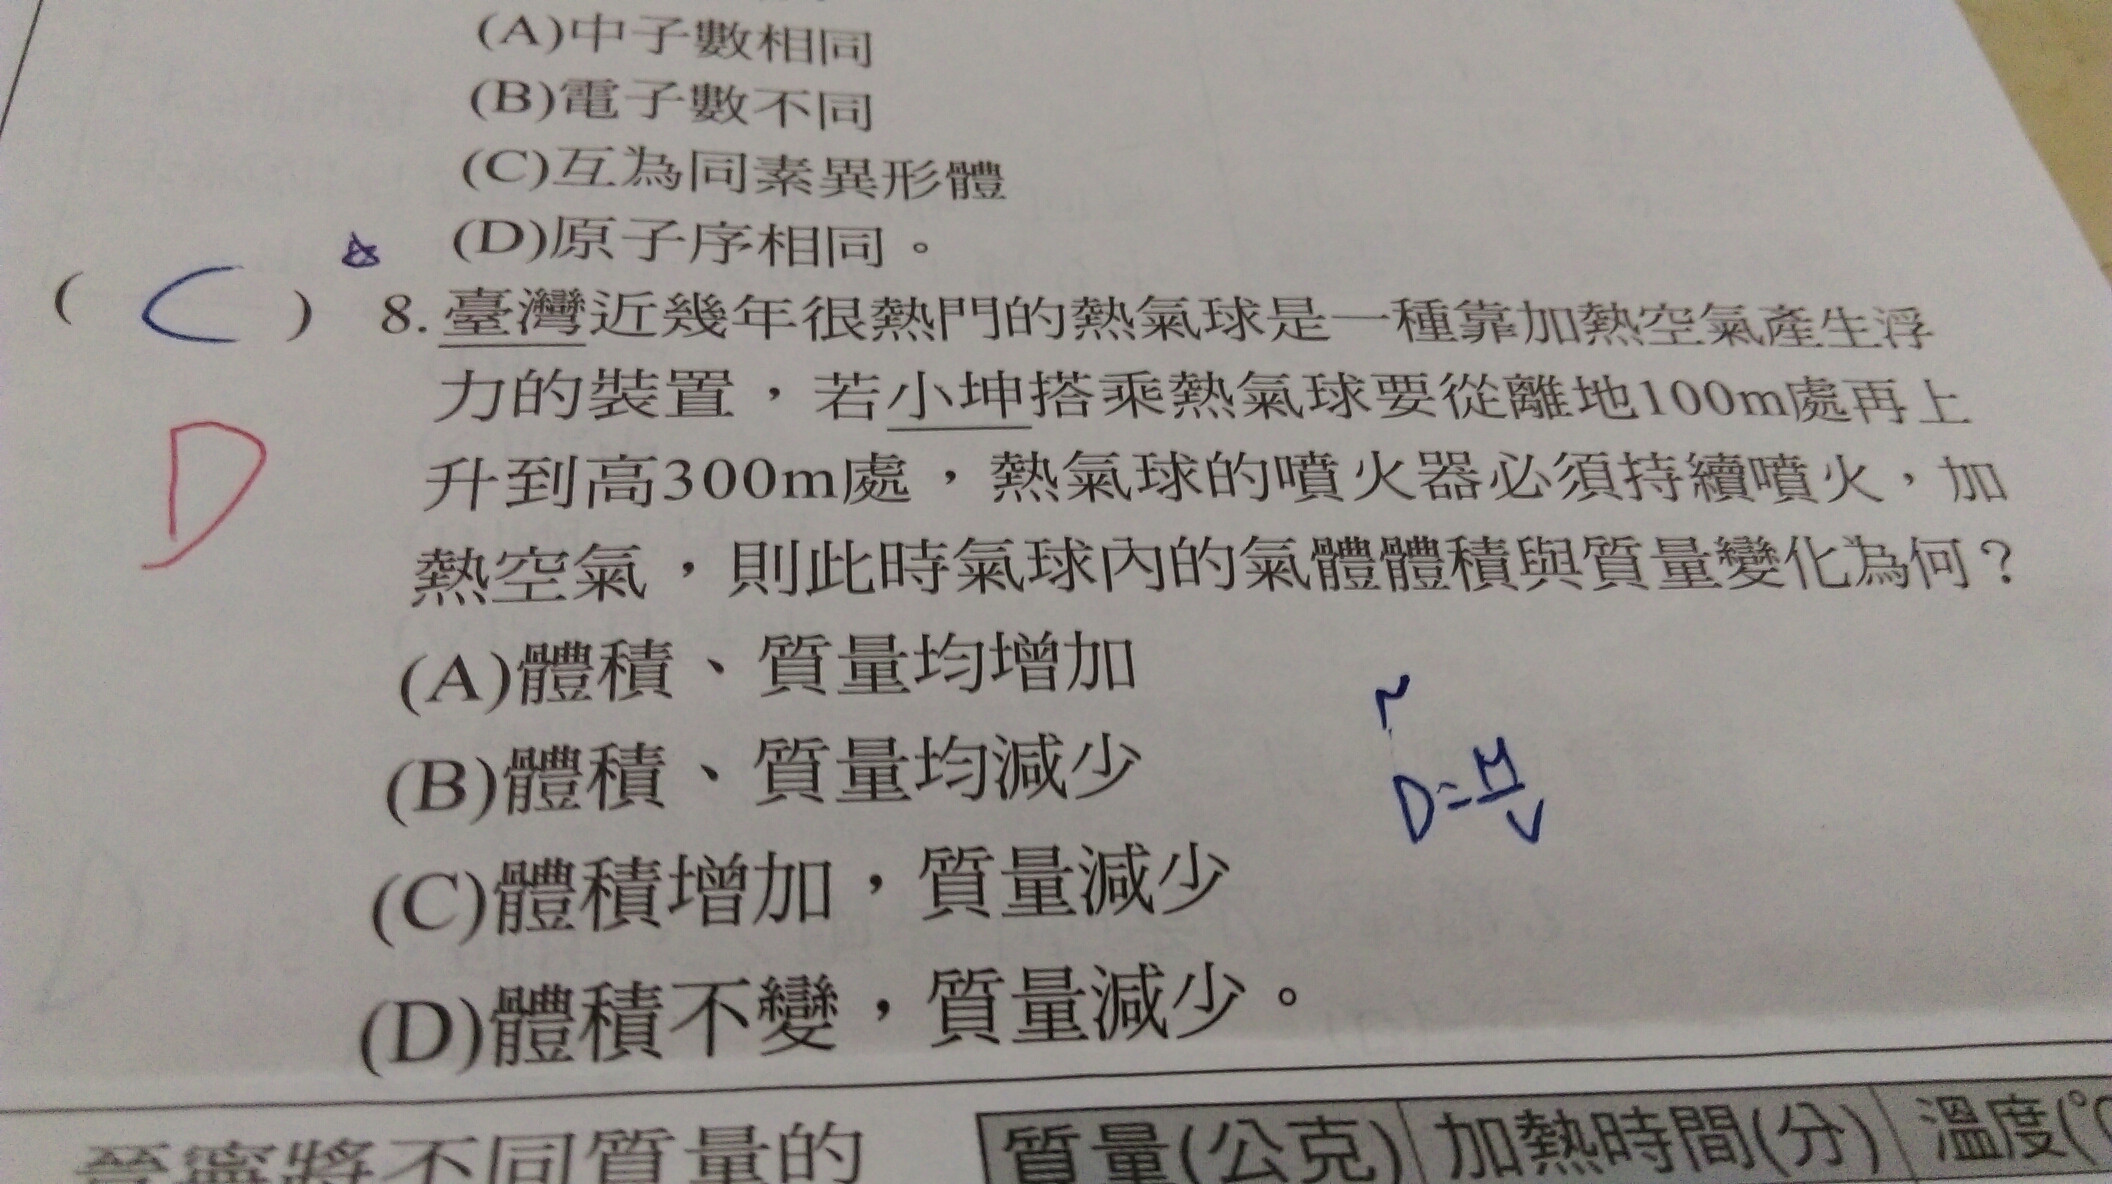 (A)中子數相同
(B)電子數不同
(C)互為同素異形體
(D)原子序相同。
( C ) 8.臺灣近幾年很熱門的熱氣球是一種靠加熱空氣產生浮
力的裝置，若小坤搭乘熱氣球要從離地100m處再上
D 升到高300m處，熱氣球的噴火器必須持續噴火，加
熱空氣，則此時氣球內的氣體體積與質量變化為何？
(A)體積、質量均增加
(B)體積、質量均減少
D=M/V
(C)體積增加，質量減少
(D)體積不變，質量減少。
將不同質量的
質量(公克) 加熱時間(分) 溫度(℃